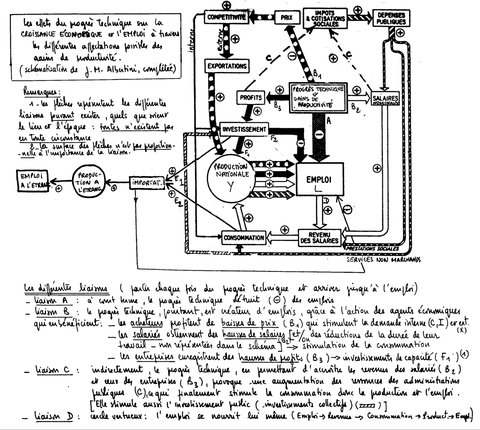 Les effets du progrès technique sur la
CROISSANCE ECONOMIQUE et l'EMPLOI à travers
les différentes affectations possibles des
gains de productivité.
(schématisation de J.M. Albertini, complétée)
Remarques:
1. les flèches représentent les différentes
liaisons pouvant exister, quels que soient
le lieu et l'époque : toutes n'existent pas
en toute circonstance
2. la surface des flèches n'est pas proportion-
nelle à l'importance de la liaison.
COMPETITIVITÉ
PRIX
IMPOTS
& COTISATIONS
SOCIALES
DEPENSES
PUBLIQUES
interne
externe
EXPORTATIONS
C
C
B1
PROFITS
B3
PROGRÈS TECHNIQUE
GAINS DE
PRODUCTIVITÉ
B2
SALAIRES
A
INVESTISSEMENT
F1
F2
PRODUCTION
NATIONALE
Y
EMPLOI
L
D
EMPLOI
A L'ETRANG.
PRODUC-
TION A
L'ETRANG.
IMPORTAT.
E1
E2
CONSOMMATION
REVENU
DES SALARIÉS
PRESTATIONS SOCIALES
SERVICES NON MARCHANDS
Les différentes liaisons (partir chaque fois du progrès technique et arriver jusqu'à l'emploi)
- liaison A : à court terme, le progrès technique détruit (-) des emplois
- liaison B : le progrès technique, pourtant, est créateur d'emplois, grâce à l'action des agents économiques
qui en bénéficient: - les acheteurs profitent de baisses de prix (B1) qui stimulent la demande interne (C,I) et ext.
- les salariés obtiennent des hausses de salaires [et/ou des réductions de la durée de leur
travail - non représentées dans le schéma] (B2) → stimulation de la consommation
- les entreprises enregistrent des hausses de profits (B3) → investissements de capacité (F1)
- liaison C : indirectement, le progrès technique, en permettant d'accroître les revenus des salariés (B2)
et ceux des entreprises (B3), provoque une augmentation des revenus des administrations
publiques (C), ce que finalement stimule la consommation donc la production et l'emploi.
[Elle stimule aussi l'investissement public (investissements collectifs)]
- liaison D : cercle vertueux: l'emploi se nourrit lui même (Emploi → Revenu → Consommation → Product. → Empl.